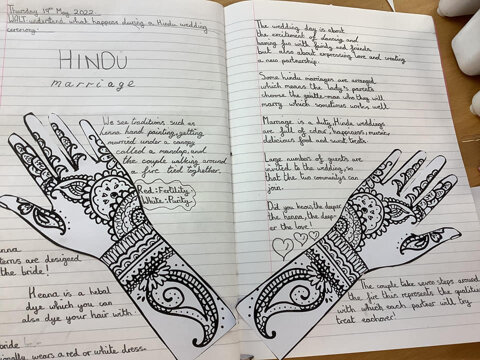 Thursday 19th May 2022
WALT understand what happens during a Hindu wedding
ceremony.
HINDU
marriage
We see traditions such as
henna hand painting, getting
married under a canopy
called a mandap, and
the couple walking around
a fire tied together.
Red-Fertility
White-Purity
enna
terns are designed
the bride!
Henna is a herbal
dye which you can
also dye your hair with.
bride
onally wears a red or white dress.
The wedding day is about
the excitement of dancing and
having fun with family and friends
but also about expressing love and creating
a new partnership.
Some hindu marriages are arranged
which means the lady's parents
choose the gentle-man who they will
marry which sometimes works well.
Marriage is a duty, Hindu weddings
are full of colour, happiness, music,
delicious food and sweet treats.
Large numbers of guests are
invited to the wedding, so
that the two communitys can
join.
Did you know, the deeper
the henna, the deep-
er the love!
The couple take seven steps around
the fire this represents the qualities
with which each partner will try
treat eachover!